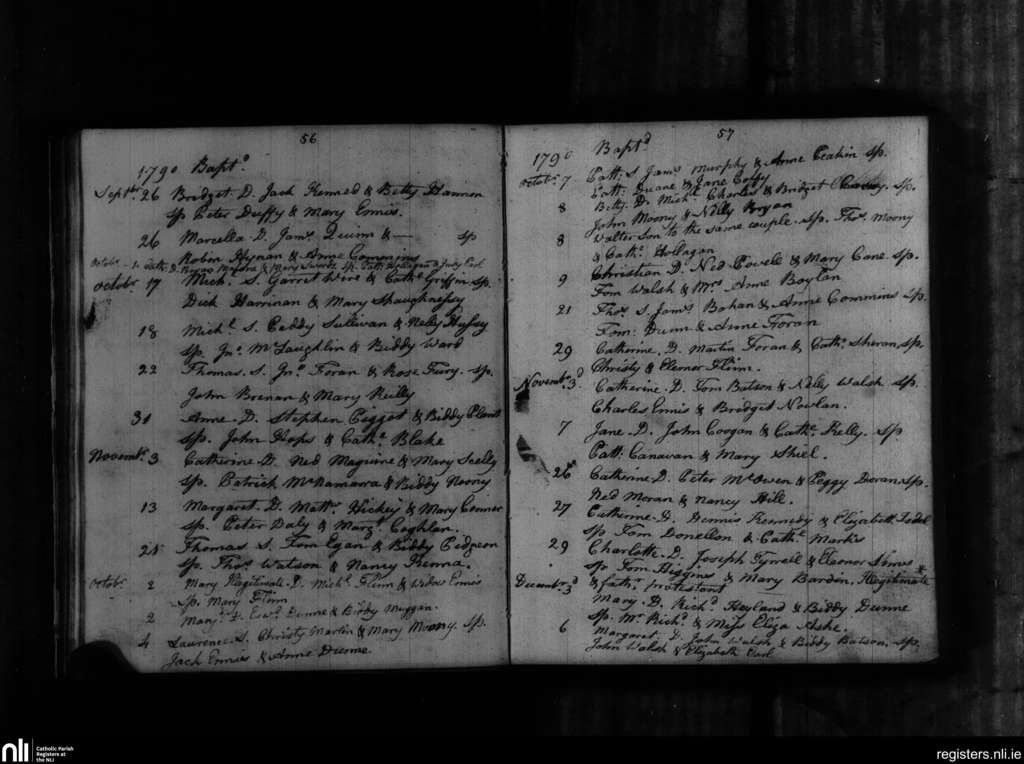 56
1790 Bapt.d
Septbr. 26 Bridget D. Jack Kenned & Betty Hannon
Sp Peter Duffy & Mary Ennis.
26 Marcella D. Jams. Quinn & — sp
Robin Hynan & Anne Commins
Octobr. 1. D. & Mary Swords Sp. Pat: & Judy
Octobr. 17 Mich. S. Garret Were & Cathe. Griffin Sp.
Dick Harrinan & Mary Shaughnessy
18 Michl. S. Paddy Sullivan & Nelly Hussey
Sp. Jno. McLaughlin & Biddy Ward
22 Thomas. S. Jno. Foran & Rose Fury. Sp.
John Brenan & Mary Reilly
31 Anne. D. Stephen Pigget & Biddy Plant
Sp. John Hops & Cathe. Blake
Novembr. 3 Catherine D. Ned Maguire & Mary Scelly
Sp. Patrick McNamarra & Biddy Noony
13 Margaret. D. Mattw. Hickey & Mary Connor
Sp. Peter Daly & Margt. Coghlan.
25 Thomas S. Tom Egan & Biddy Pidgeon
Sp. Thos. Watson & Nancy Kenna.
Octobr. 2 Mary Illegitimate D. Michl. Flinn & Widow Ennis
Sp. Mary Flinn
2 Mary. D. Edwd. Dunne & Biddy Muggan.
4 Laurence. S. Christy Martin & Mary Moony. Sp.
Jack Ennis & Anne Dunne
57
1790 Bapt.d
Octobr. 7 Patt: S Jams. Murphy & Anne Peakin Sp.
Patt: Duane & Jane Coffy
8 Betty. D. Michl. Charles & Bridget Sp.
John Moony & Nelly Bryan
8 Walter Son to the same couple. Sp. Thos. Moony
& Cathe. Hollagan
9 Christian D. Ned Povell & Mary Cane. Sp.
Tom Walsh & Mrs. Anne Boylan
21 Thos. S. Jams. Bohan & Anne Commins Sp.
Tom: Dunn & Anne Foran
29 Catherine. D. Martin Foran & Cathe. Sheran, Sp
Christy & Elenor Flinn.
Novembr. 3d. Catherine. D. Tom Batson & Nelly Walsh Sp.
Charles Ennis & Bridget Nowlan.
7 Jane. D. John Coogan & Cathe. Kelly. Sp
Patt: Canavan & Mary Shiel.
26 Catherine D. Peter McOwen & Peggy Doran Sp.
Ned Moran & Nancy Hill.
27 Catherine. D. Dennis Kennedy & Elizabeth
Sp Tom Donellon & Cathe. Markis
29 Charlotte. D. Joseph Tyrrell & Eleonor
Sp Tom Higgins & Mary Bardin. Illegitimate
& fathr. Protestant
Decembr. 3d Mary. D. Richd. Heyland & Biddy Dunne
Sp. Mr. Richd. & Miss Eliza Ashe.
6 Margaret. D. John Walsh & Biddy Batson. Sp.
John Walsh & Elizabeth Earl
nli
Catholic Parish
Registers at
the NLI
registers.nli.ie